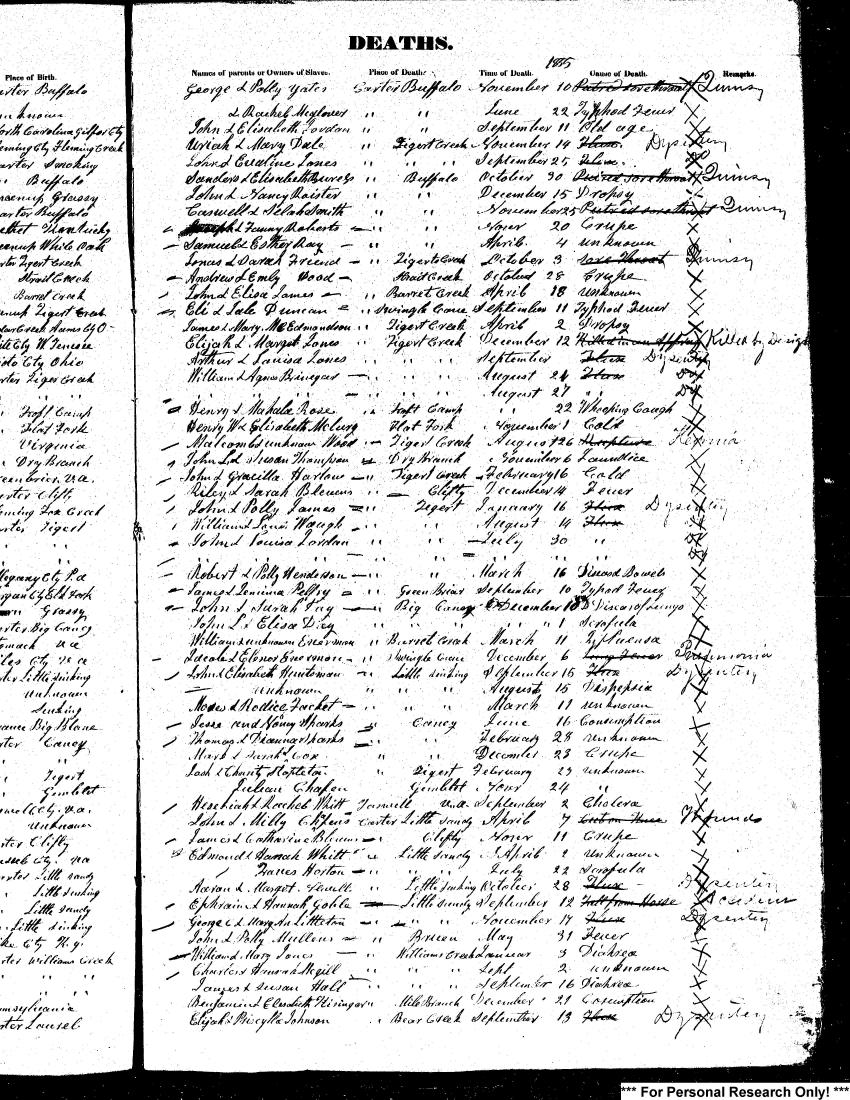 DEATHS.
1875
Place of Birth. Names of parents or Owners of Slaves. Place of Death. Time of Death. Cause of Death. Remarks.
Carter Buffalo George & Polly Yates Carter Buffalo November 10 Putrid sore throat Quinsy
unknown & Rachel " " June 22 Typhod Fever
North Carolina Gilford Cty John & Elisabeth Jordan " " September 11 Old age
Fleming Cty Fleming Creek Uriah & Mary Dale " Tigert Creek November 14 Flux Dysentery
Carter Smoking John & Evaline Jones " " September 25 Flux
" Buffalo Sanders & Elisabeth " Buffalo October 30 Putrid sore throat Quinsy
Greenup Grassy John & Nancy Roister " " December 15 Dropsy
Carter Buffalo Caswell & Selah Smith " " November 25 Putrid sore throat Quinsy
Kentucky Joseph & Fanny Roberts " " Nover 20 Crupe
Greenup White Oak Samuel & Esther Ray " " April 4 unknown
Carter Tigert Creek Jonas & Sarah Friend " Tigerts Creek October 3 Sore Throat Quinsy
Strait Creek Andrew & Emly Wood " Strait Creek October 28 Crupe
Barret Creek John & Elisa James " Barret Creek April 18 unknown
Tigert Creek Eli & Duncan " Swingle Cane September 11 Typhod Fever
Adams Cty O James & Mary McEdmondson " Tigert Creek April 2 Dropsy
Cty W Tenesee Elijah & Margret Jones " Tigert Creek December 12 Killed by Design
Cty Ohio Arthur & Louisa Jones " " September Flux Dysentery
Carter Tiger Creek William & Agnes Brinegar " " August 24 Flux Do
" " " " " " August 27 " Do
" Troft Camp Henry & Mahala Rose " Troft Camp " 22 Whooping Cough
" Flat Fork Henry W & Elisabeth " Flat Fork November 1 Cold
Virginia Malcomb & unknown Wood " Tigert Creek August 26 Rupture Hernia
" Dry Branch John L & Susan Thompson " Dry Branch November 6 Jaundice
Greenbrier, va. John & Gracilla Harlow " Tigert Creek February 16 Cold
Carter Clifty Riley & Sarah Blevens " Clifty December 14 Fever
Fleming Fox Creek John & Polly James " Tigert January 16 Flux Dysentery
Carter Tigert William & Jane Waugh " " August 14 Flux
" " John & Louisa Jordan " " July 30 " Do
" " " " " " " Do
Alegany Cty P.a Robert & Polly Henderson " " March 16 Diseasd Bowels
Morgan Cty Elk Fork James & Jemima Pelfry " Green Briar September 10 Typhod Fever
Grassy John & Sarah " Big Caney December 18 Lungs
Carter Big Caney John L & Elisa Day " " " 1 Scrofula
va William & unknown Everman " Barret Creek March 11 Influensa
Giles Cty va Jacob & Elenor Everman " Swingle Cane December 6 Lung Fever Pneumonia
Carter Little sinking John & Elisabeth Huntsman " Little sinking September 15 Flux Dysentery
unknown unknown " " " August 15 Dispepsia
Sinking Moses & Rodice Jacket " " " March 11 unknown
Big Blane Jesse and Nancy Sparks " Caney June 16 Consumption
Carter Caney Thomas & Dianna Sparks " " February 28 unknown
" " Mark & Sarah Cox " " December 23 Crupe
" Tigert & Charity Stapleton " Tigert February 23 unknown
" Gimblet Juliean Chafen Gimblet Nover 24 "
Cty. va. Hesekiah & Rachel Whitt va September 2 Cholera
unknown John & Milly Carter Little Sandy April 7 Wounds
Carter Clifty James & Catharine Blevens " Clifty Nover 11 Crupe
Russel Cty. va Edmond & Hannah Whitt " Little sandy April 2 unknown
Carter Little sandy James Horton " " " July 22 Scrofula
" Little sinking Aaron & Margret " Little sinking October 28 Flux Dysentery
" Little sandy Ephraim & Hannah Goble " Little sandy September 12 Fall from Horse Accident
" Little sinking George & Mary An Littleton " " November 17 Flux Dysentery
Cty Ky. John & Polly Mullens " Brueen May 31 Fever
Carter Williams Creek William & Mary Jones " Williams Creek January 3 Diahrea
" " Charles & Hannah Megill " " " Sept 2 unknown
" " James & Susan Hall " " " September 16 Diahrea
Pennsylvania Benjamin & Elisabeth " Mile Branch December 21 Consumption
Carter Laurel Elijah & Priscylla Johnson " Bear Creek September 13 Flux Dysentery
*** For Personal Research Only! ***